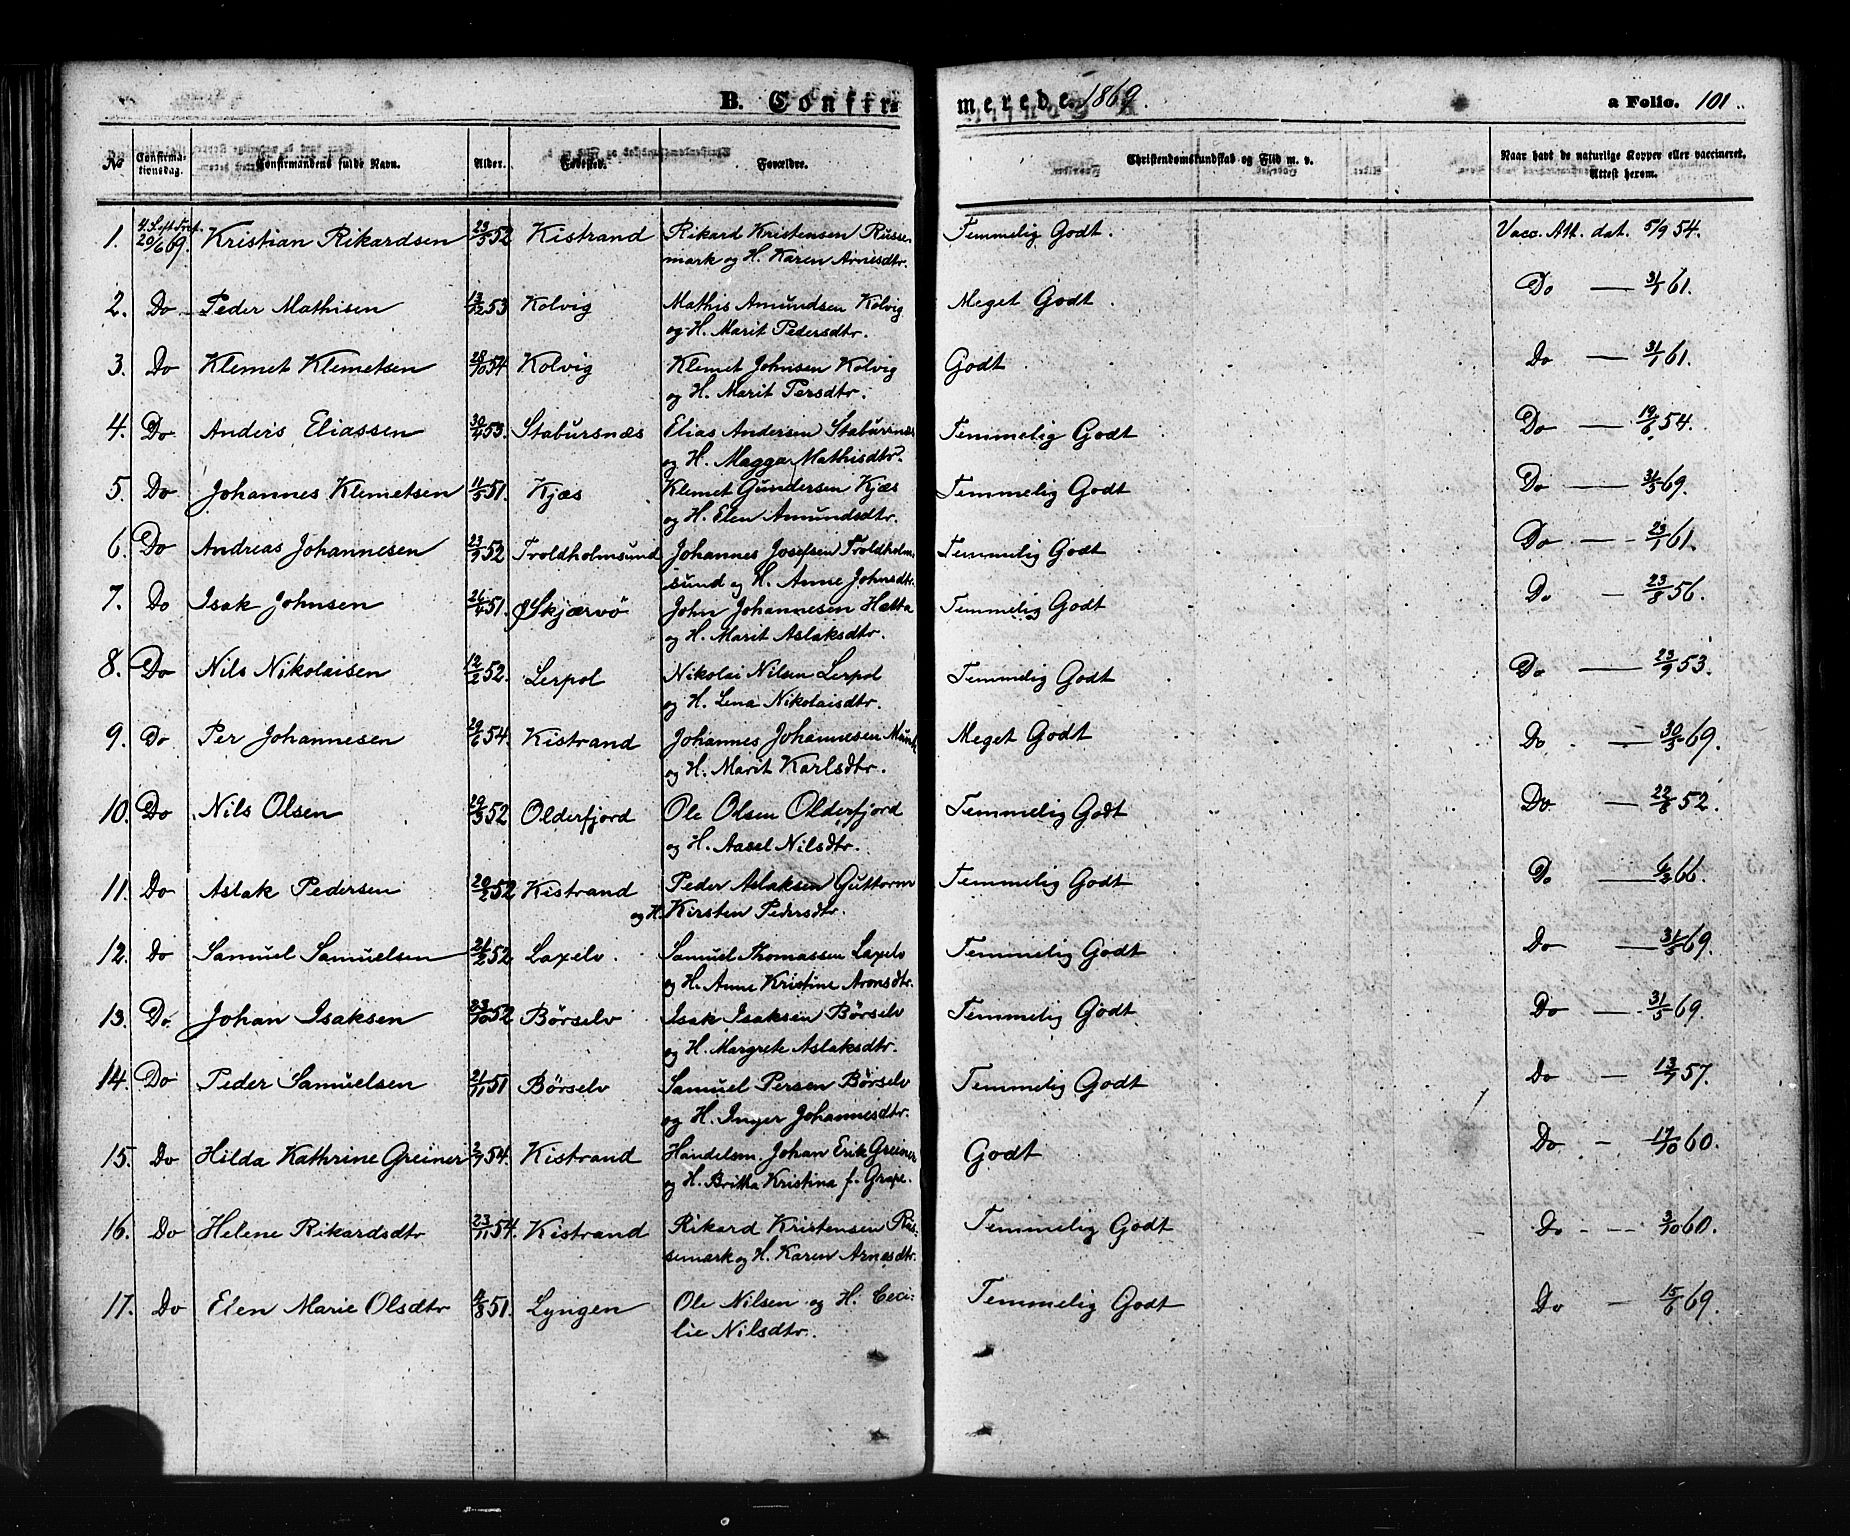 B. Confir- merede. 1869. a Folio. 101
No Confirmationsdag. Confirmandens fulde Navn. Alder. Fødested. Forældre. Christendomskundskab og Flid m. v. Naar havt de naturlige Kopper eller vaccineret. Attest herom.
1. 4. S. eft. Tref. 20/6 69. Kristian Rikardsen 23/5 52 Kistrand Rikard Kristensen Russe- Temmelig Godt. Vacc. Att. dat. 5/9 54.
mark og H. Karen Arnesdtr.
2. Do Peder Mathisen 13/12 53 Kolvig Mathis Amundsen Kolvig Meget Godt Do — 31/1 61.
og H. Marit Pedersdtr.
3. Do Klemet Klemetsen 28/10 54 Kolvig Klemet Johnsen Kolvig Godt Do — 31/1 61.
og H. Marit Persdtr.
4. Do Anders Eliassen 30/4 53. Stabursnæs Elias Andersen Stabursnæs Temmelig Godt Do — 19/6 54.
og H. Magga Mathisdtr.
5. Do Johannes Klemetsen 11/5 51. Kjæs Klemet Gundersen Kjæs Temmelig Godt Do — 31/5 69.
og H. Elen Amundsdtr.
6. Do Andreas Johannesen 23/9 52 Troldholmsund Johannes Josefsen Troldholm- Temmelig Godt Do — 23/1 61.
sund og H. Anne Johnsdtr.
7. Do Isak Johnsen 26/4 51. Skjærvö John Johannesen Hætta Temmelig Godt Do — 23/8 56.
og H. Marit Aslaksdtr.
8. Do Nils Nikolaisen 12/2 52. Lerpol Nikolai Nilsen Lerpol Temmelig Godt Do — 23/9 53.
og H. Lena Nikolaisdtr.
9. Do Per Johannesen 29/6 54. Kistrand Johannes Johannesen Meget Godt Do — 30/5 69.
og H. Marit Karlsdtr.
10. Do Nils Olsen 29/5 52 Olderfjord Ole Olsen Olderfjord Temmelig Godt Do — 22/8 52.
og H. Aasel Nilsdtr.
11. Do Aslak Pedersen 20/2 52 Kistrand Peder Aslaksen Guttorm Temmelig Godt Do — 66.
og H. Kirsten Pedersdtr.
12. Do Samuel Samuelsen 21/2 52 Laxelv. Samuel Thomassen Laxelv Temmelig Godt Do — 31/5 69.
og H. Anne Kristine Aronsdtr.
13. Do. Johan Isaksen 23/10 52 Börselv Isak Isaksen Börselv Temmelig Godt Do — 31/5 69.
og H. Margrete Aslaksdtr.
14. Do Peder Samuelsen 21/11 51 Börselv Samuel Persen Börselv Temmelig Godt Do — 13/7 57.
og H. Inger Johannesdtr.
15. Do Hilda Kathrine Greiner 2/7 54. Kistrand Handelsm. Johan Erik Greiner Godt Do - 17/10 60.
og H. Britta Kristina f. Grape.
16. Do Helene Rikardsdtr 23/11 54. Kistrand Rikard Kristensen Rus- Temmelig Godt Do — 3/10 60.
semark og H. Karen Arnesdtr.
17. Do Elen Marie Olsdtr 51. Lyngen Ole Nilsen og H. Ceci- Temmelig Godt Do — 15/6 69.
lie Nilsdtr.